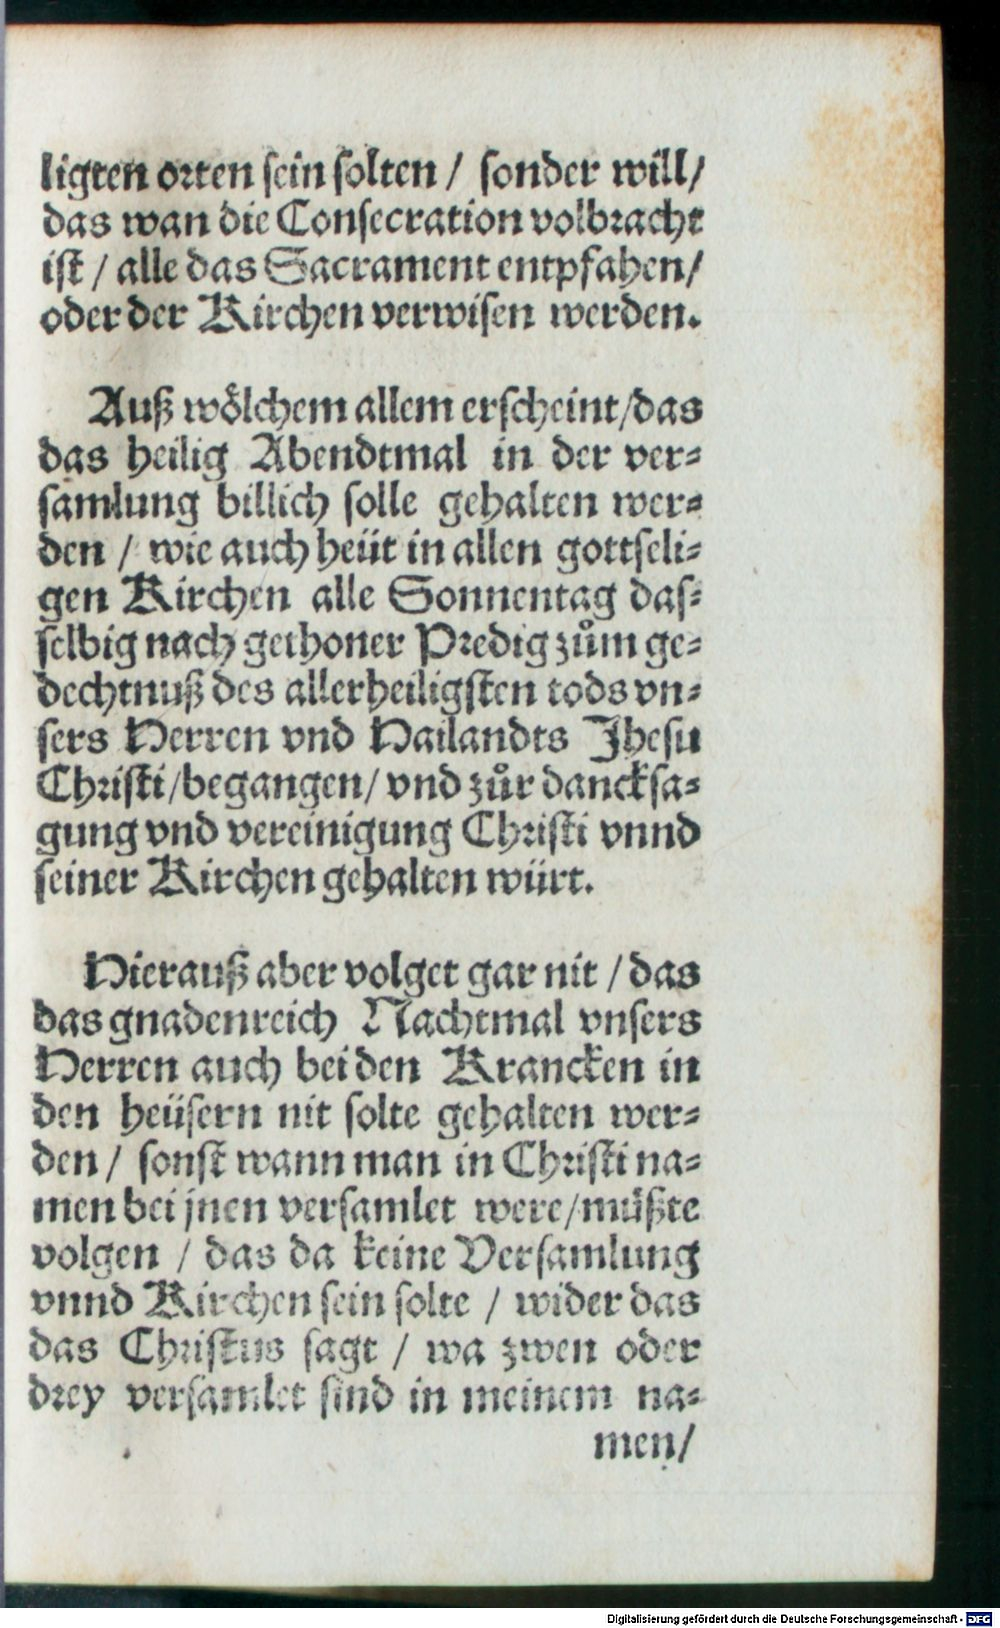 ligten orten sein solten / sonder will/
das wan die Consecration volbracht
ist / alle das Sacrament entpfahen/
oder der Kirchen verwisen werden.
Auß wölchem allem erscheint/das
das heilig Abendtmal in der ver⸗
samlung billich solle gehalten wer⸗
den / wie auch heüt in allen gottseli⸗
gen Kirchen alle Sonnentag das⸗
selbig nach gethoner Predig zům ge⸗
dechtnuß des allerheiligsten tods vn⸗
sers Herren vnd Hailandts Jhesu
Christi/begangen/ vnd zůr dancksa⸗
gung vnd vereinigung Christi vnnd
seiner Kirchen gehalten würt.
Hierauß aber volget gar nit / das
das gnadenreich Nachtmal vnsers
Herren auch bei den Krancken in
den heüsern nit solte gehalten wer⸗
den / sonst wann man in Christi na⸗
men bei jnen versamlet were/müßte
volgen / das da keine Versamlung
vnnd Kirchen sein solte / wider das
das Christus sagt / wa zwen oder
drey versamlet sind in meinem na⸗
men/
Digitalisierung gefördert durch die Deutsche Forschungsgemeinschaft - DFG